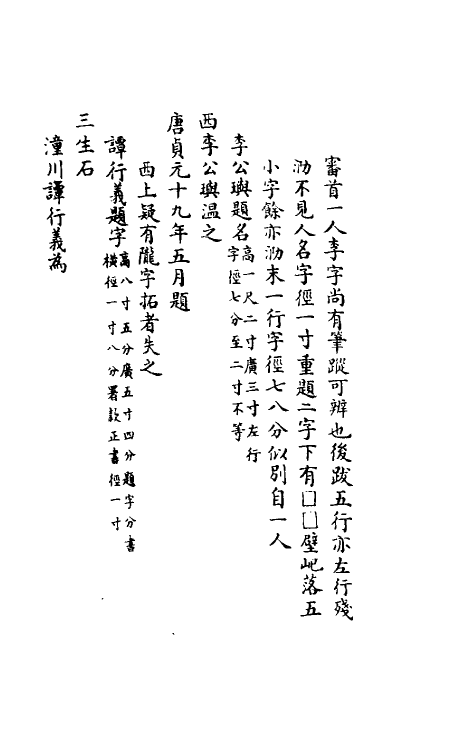 審首一人李字尚有筆蹤可辨也後跋五行亦左行殘
泐不見人名字徑一寸重題二字下有□□壁屺落五
小字餘亦泐末一行字徑七八分似別自一人
李公璵題名高一尺二寸廣三寸左行
字徑七分至二寸不等
西李公璵溫之
唐貞元十九年五月題
西上疑有隴字拓者失之
譚行義題字高八寸五分廣五寸四分題字分書
橫徑一寸八分署款正書徑一寸
三生石
潼川譚行義為